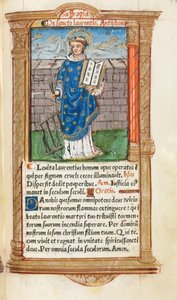 De sancto laurentio. Antiphona
Leuita laurentius bonum opus operatus e
qui per signum crucis cecos illuminauit. Vers.
Dispersit dedit pauperibus. Justicia ei
manet in Oratio.
Da nobis quesumus omnipotens deus vicio
rum nostrorum flammas extinguere qui
beato laurentio martyri tuo tribuisti tormen
torum suorum incendia superare. Per domi
num nostrum iesum christum filium tuum. Qui te
cum viuit et regnat in vnitate spiritussancti
deus. Per omnia secula seculorum. Amen.